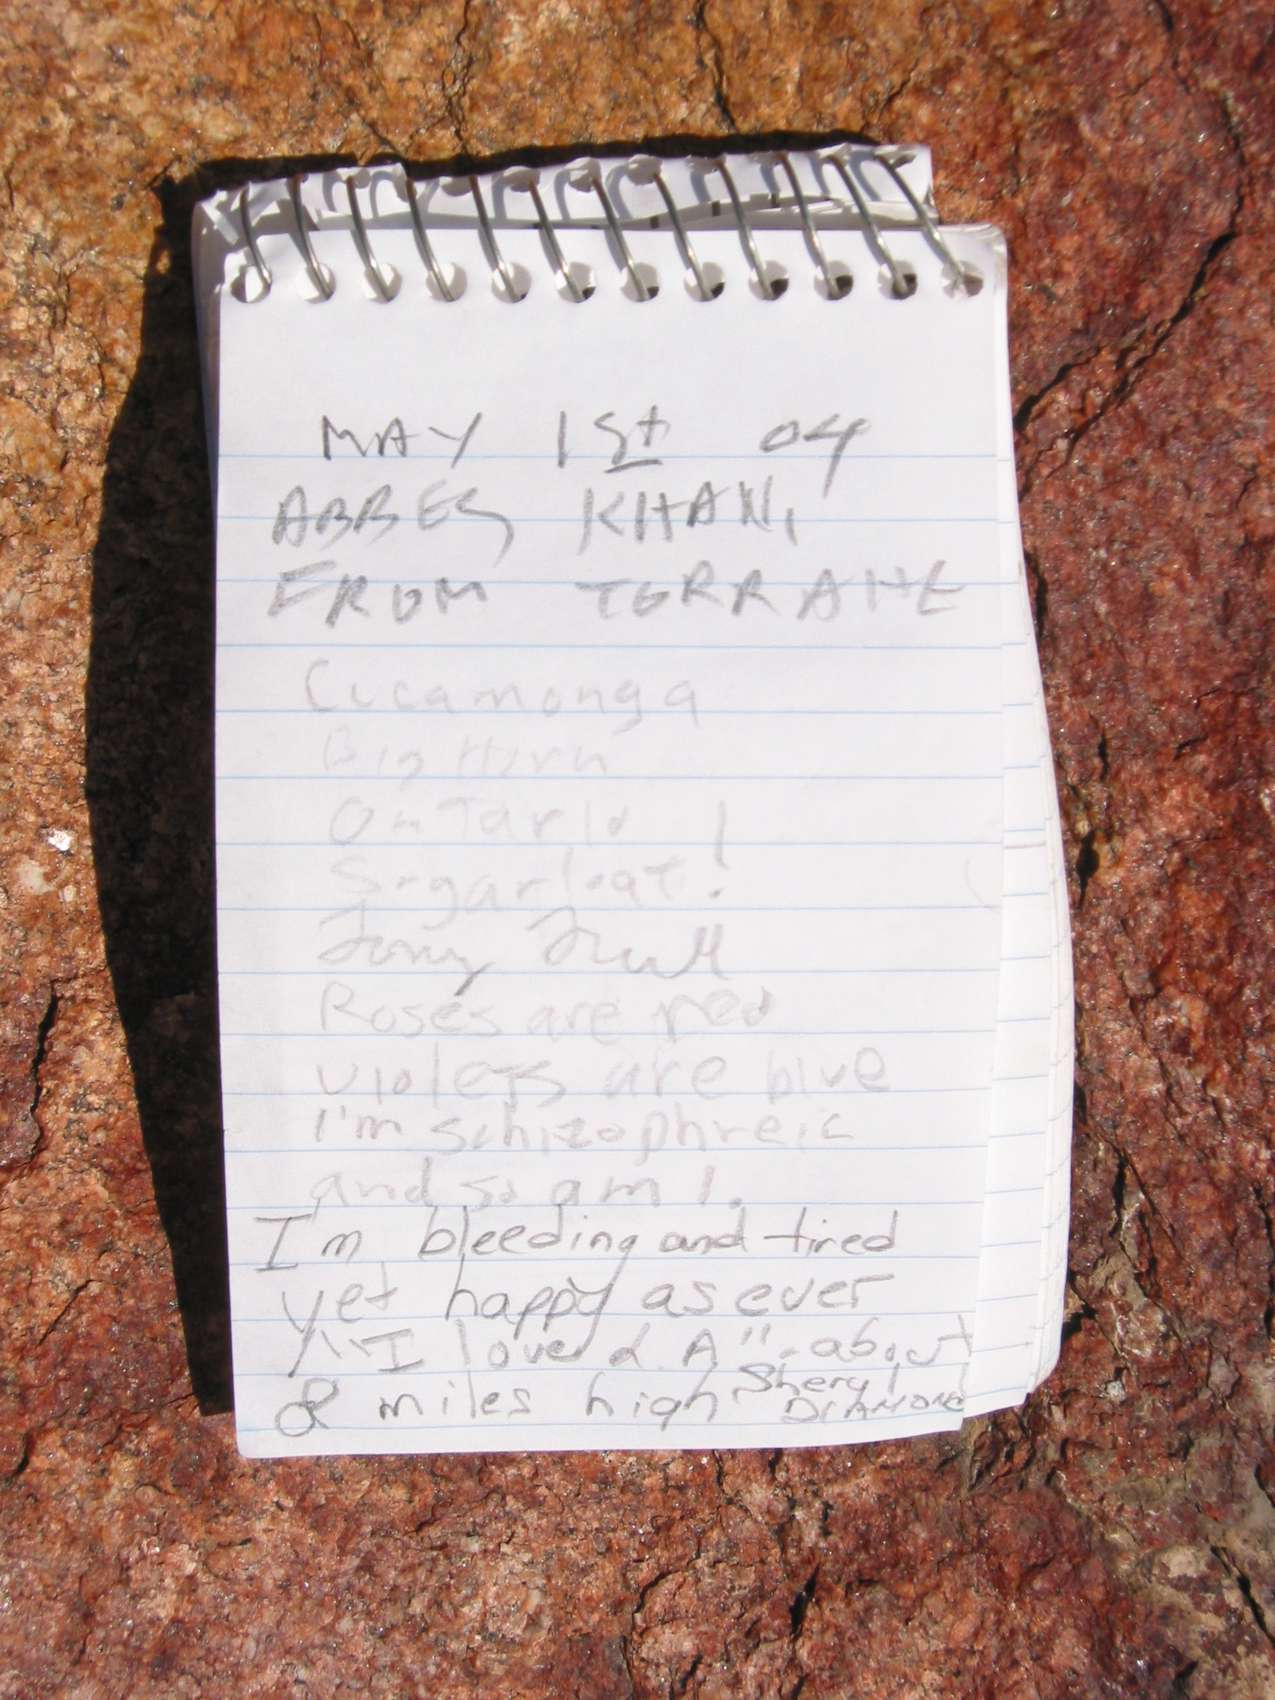 MAY 1st 04
ABBES KHANI
FROM TORRANE
Cucamonga
Big Horn
Ontario !
Sugarloaf !
Tony
Roses are red
violets are blue
I'm schizophreic
and so am I.
I'm bleeding and tired
yet happy as ever
"I love L.A" - about
8 miles high Sheryl
DIAMOND